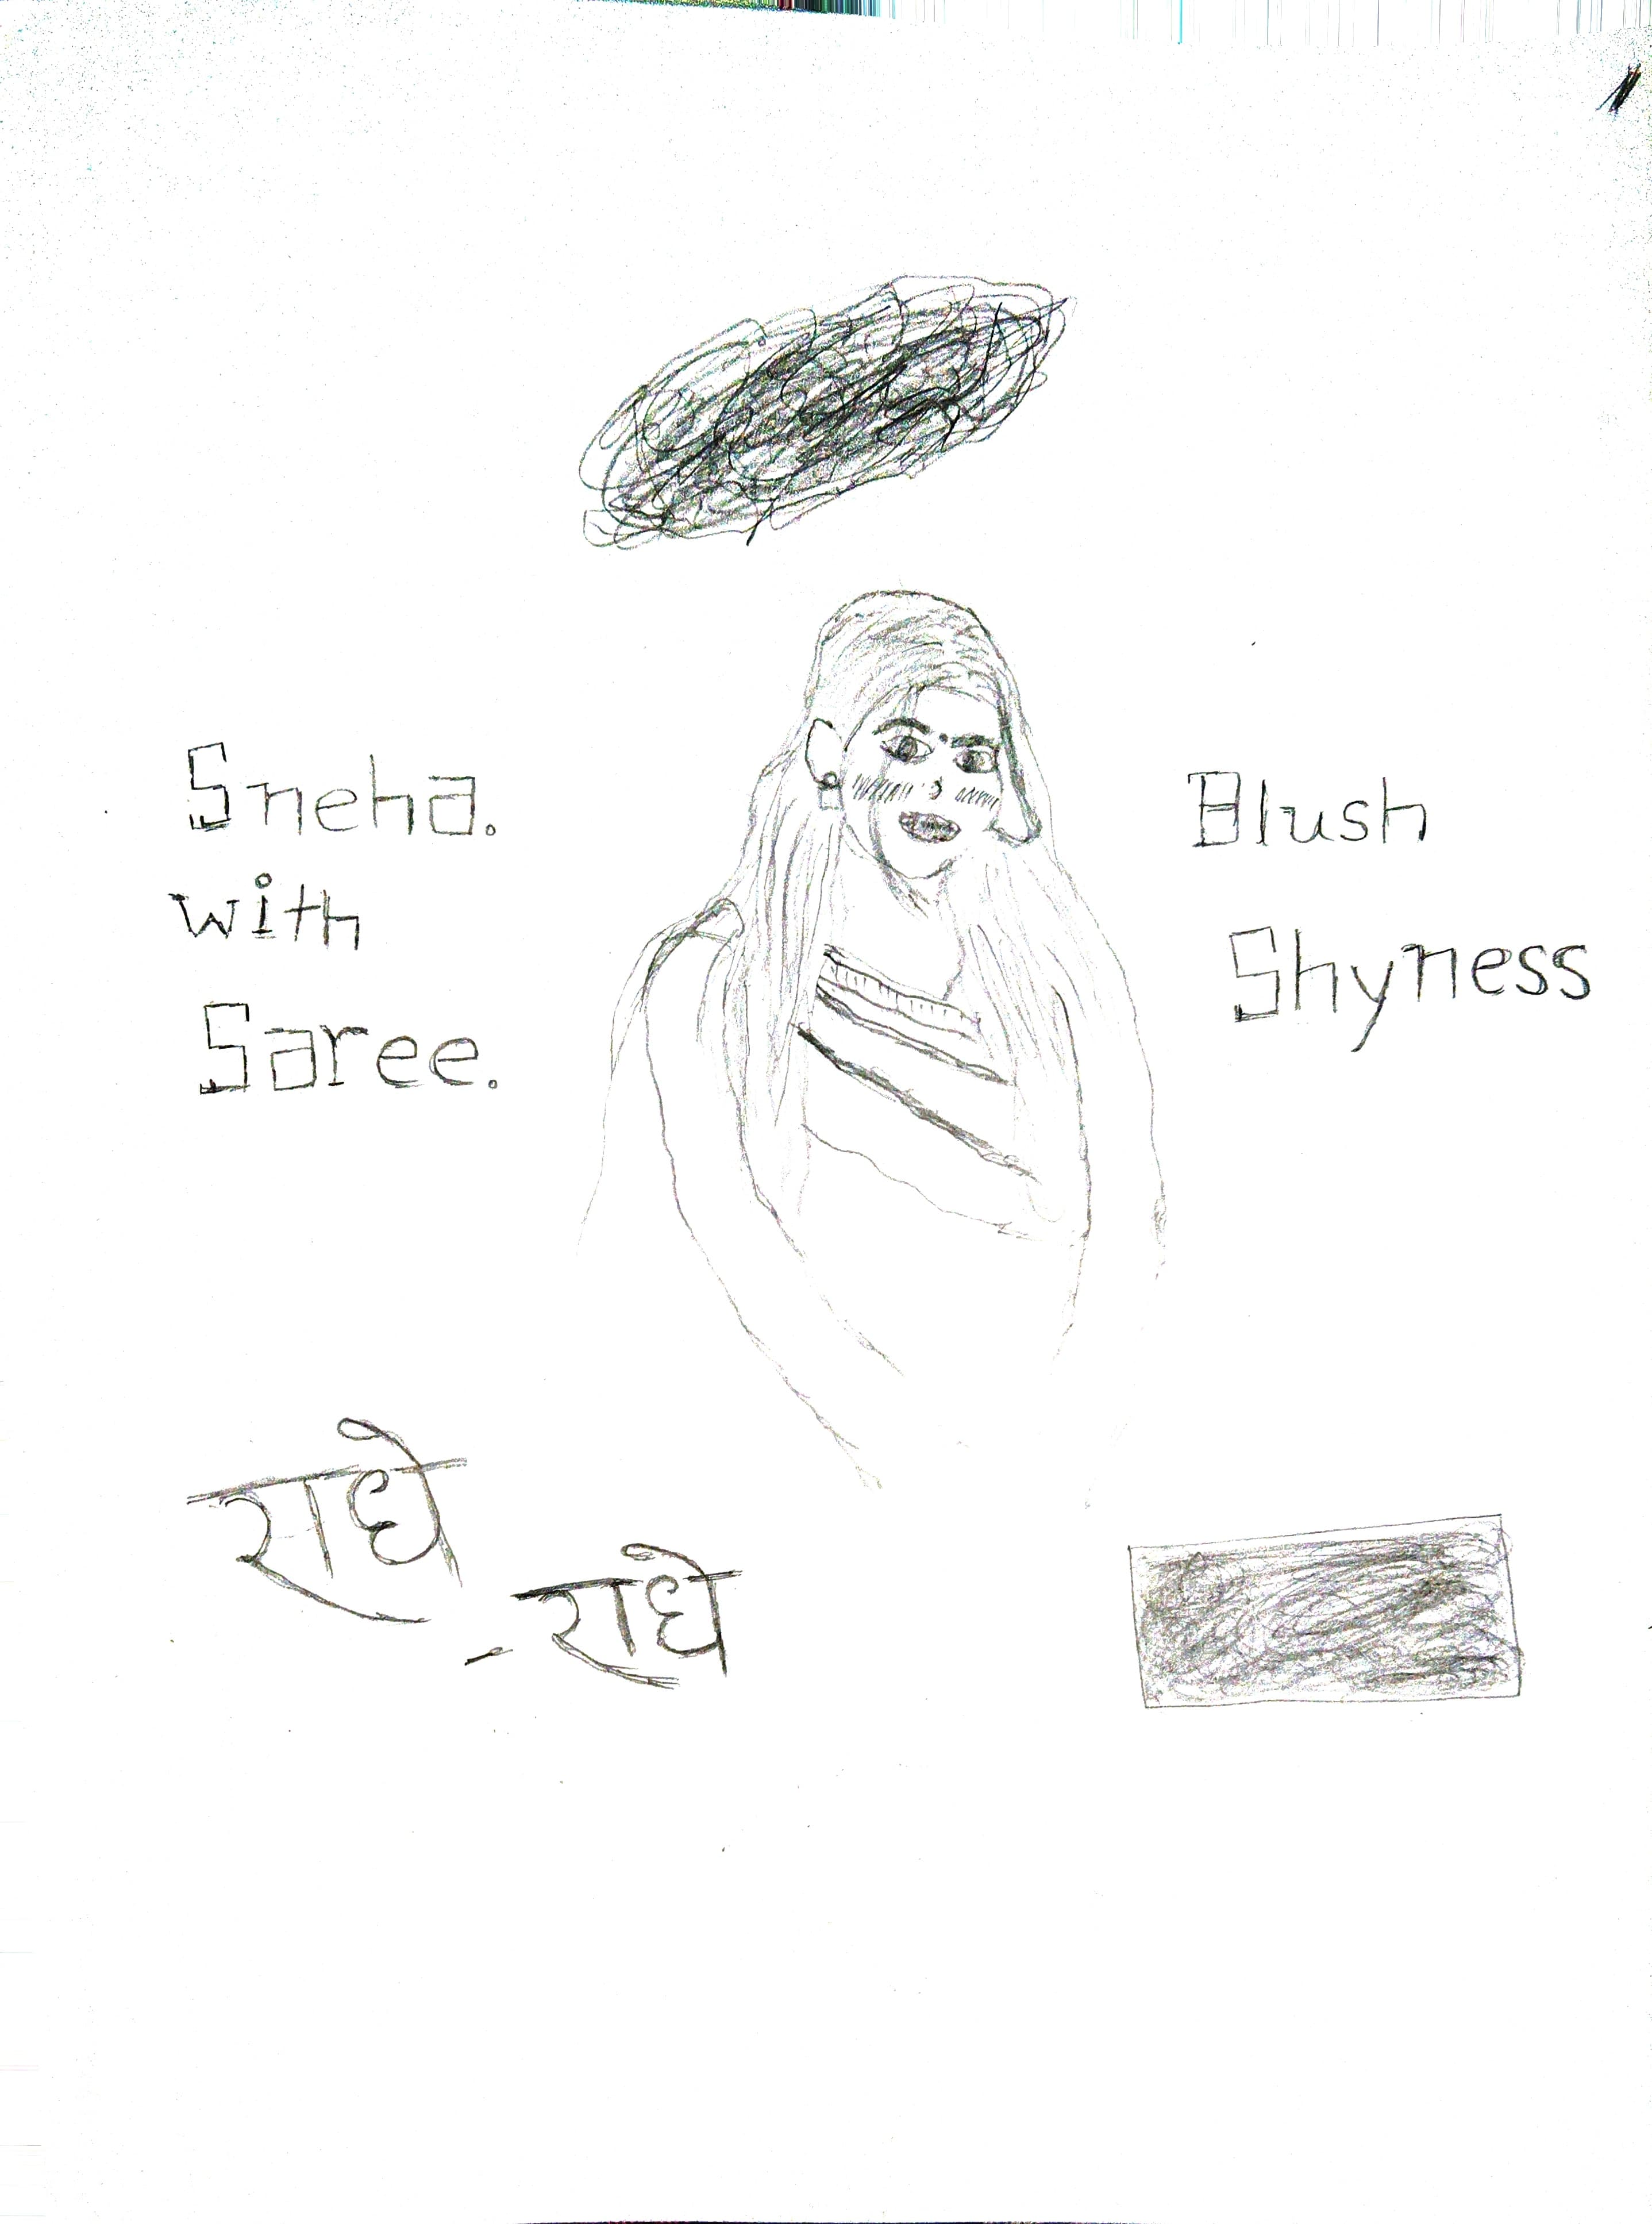 Sneha.
with
Saree.
Blush
Shyness
राधे
- राधे